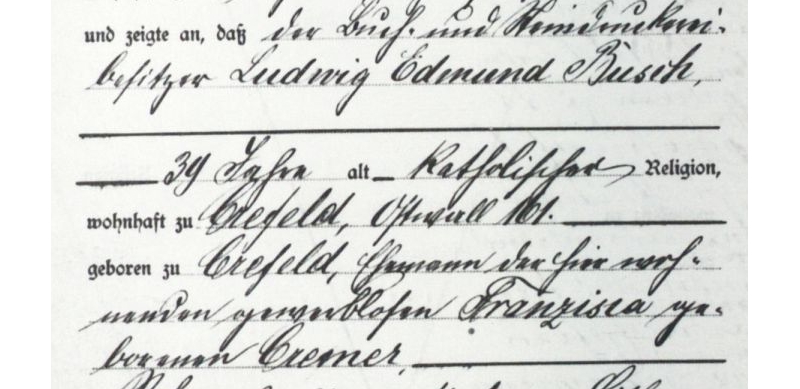 und zeigte an, daß der Buch- und Steindruckerei-
besitzer Ludwig Edmund Busch,
39 Jahre alt katholischer Religion,
wohnhaft zu Crefeld, Ostwall 161.
geboren zu Crefeld, Ehemann der hier woh-
nenden gewerblosen Franzisca ge-
borenen Cremer,